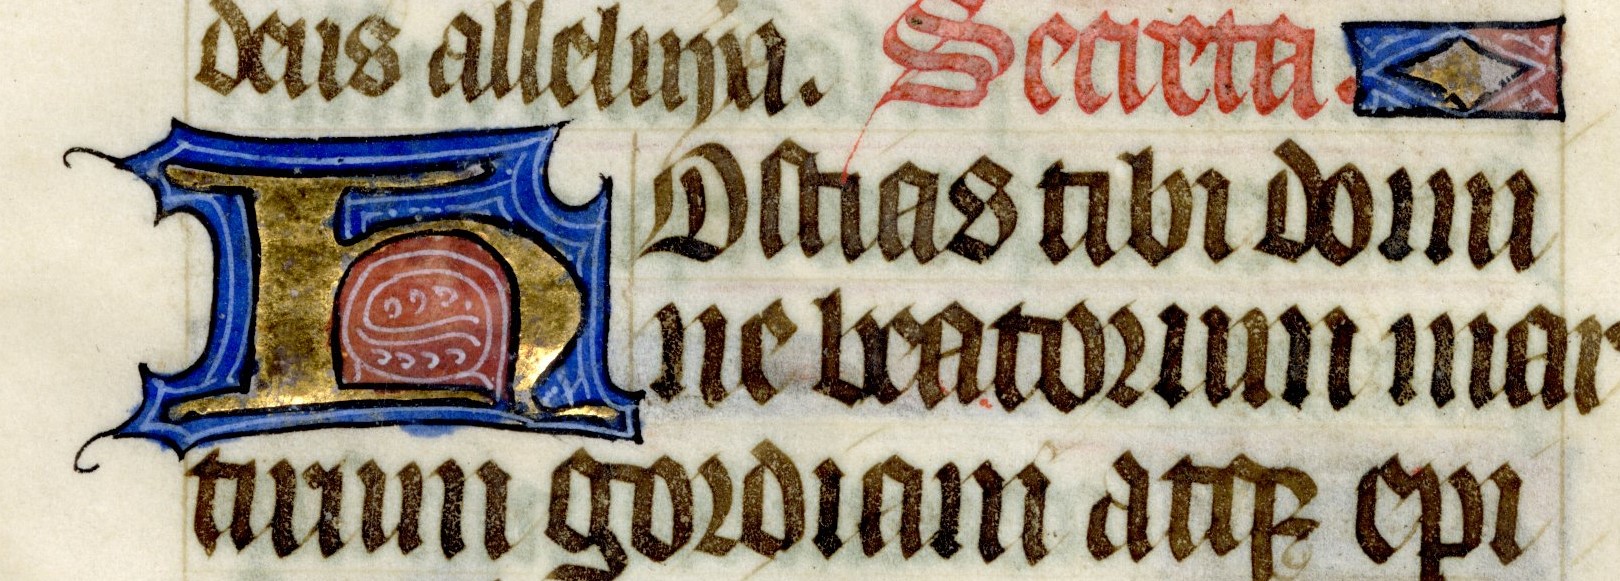 deus alleluya. Secreta.
HOstias tibi domi
ne beatorum mar
tirum gordiani atqꝫ epi